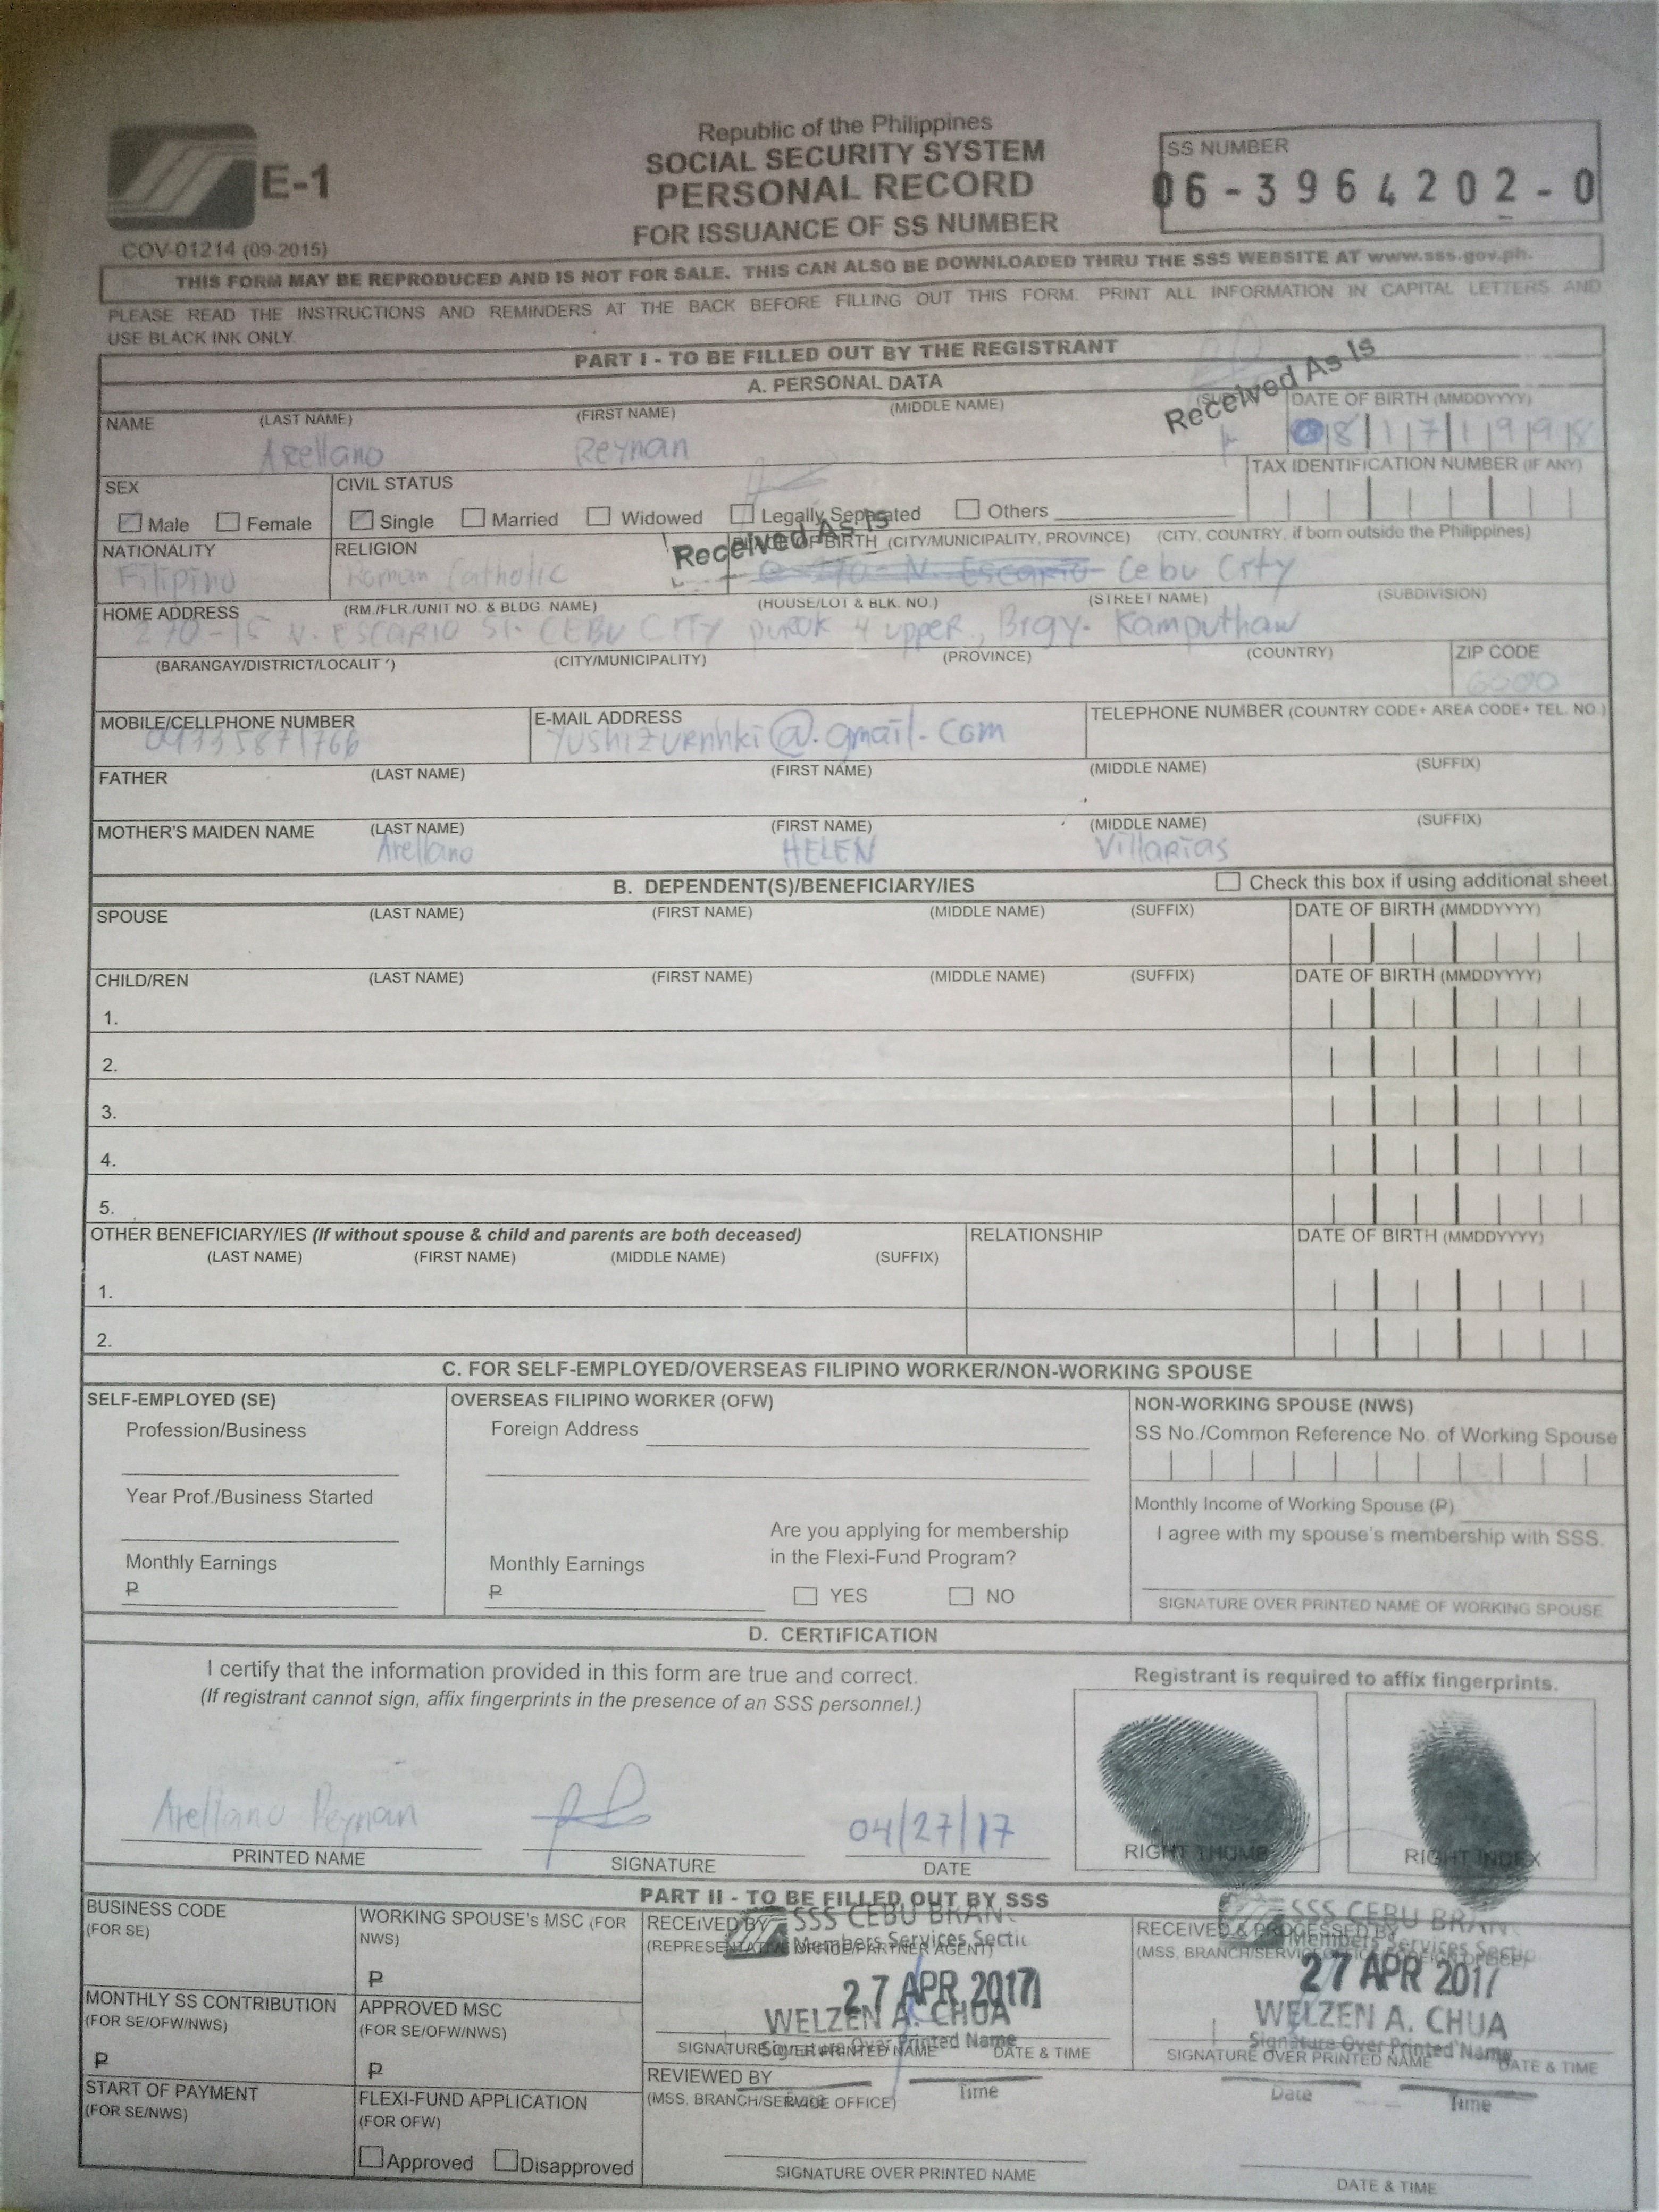 Republic of the Philippines
SOCIAL SECURITY SYSTEM
PERSONAL RECORD
FOR ISSUANCE OF SS NUMBER
E-1
COV-01214 (09-2015)
SS NUMBER
06-3964202-0
THIS FORM MAY BE REPRODUCED AND IS NOT FOR SALE. THIS CAN ALSO BE DOWNLOADED THRU THE SSS WEBSITE AT www.sss.gov.ph.
PLEASE READ THE INSTRUCTIONS AND REMINDERS AT THE BACK BEFORE FILLING OUT THIS FORM. PRINT ALL INFORMATION IN CAPITAL LETTERS AND
USE BLACK INK ONLY.
PART I - TO BE FILLED OUT BY THE REGISTRANT
A. PERSONAL DATA
NAME (LAST NAME) (FIRST NAME) (MIDDLE NAME) DATE OF BIRTH (MMDDYYYY)
Received As Is
Arellano Reynan 08171998
SEX CIVIL STATUS TAX IDENTIFICATION NUMBER (IF ANY)
Male Female Single Married Widowed Legally Separated Others
NATIONALITY RELIGION PLACE OF BIRTH (CITY/MUNICIPALITY, PROVINCE) (CITY, COUNTRY, if born outside the Philippines)
Received As Is
Filipino Roman Catholic Cebu City
HOME ADDRESS (RM./FLR./UNIT NO. & BLDG. NAME) (HOUSE/LOT & BLK. NO.) (STREET NAME) (SUBDIVISION)
N. ESCARIO St. CEBU CITY PUROK 4 upper, Brgy. Kamputhaw
(BARANGAY/DISTRICT/LOCALITY) (CITY/MUNICIPALITY) (PROVINCE) (COUNTRY) ZIP CODE
6000
MOBILE/CELLPHONE NUMBER E-MAIL ADDRESS TELEPHONE NUMBER (COUNTRY CODE+ AREA CODE+ TEL. NO.)
09335871766 @.gmail.com
FATHER (LAST NAME) (FIRST NAME) (MIDDLE NAME) (SUFFIX)
MOTHER'S MAIDEN NAME (LAST NAME) (FIRST NAME) (MIDDLE NAME) (SUFFIX)
Arellano HELEN Villarias
B. DEPENDENT(S)/BENEFICIARY/IES Check this box if using additional sheet.
SPOUSE (LAST NAME) (FIRST NAME) (MIDDLE NAME) (SUFFIX) DATE OF BIRTH (MMDDYYYY)
CHILD/REN (LAST NAME) (FIRST NAME) (MIDDLE NAME) (SUFFIX) DATE OF BIRTH (MMDDYYYY)
1.
2.
3.
4.
5.
OTHER BENEFICIARY/IES (If without spouse & child and parents are both deceased) RELATIONSHIP DATE OF BIRTH (MMDDYYYY)
(LAST NAME) (FIRST NAME) (MIDDLE NAME) (SUFFIX)
1.
2.
C. FOR SELF-EMPLOYED/OVERSEAS FILIPINO WORKER/NON-WORKING SPOUSE
SELF-EMPLOYED (SE)
Profession/Business
Year Prof./Business Started
Monthly Earnings
₱
OVERSEAS FILIPINO WORKER (OFW)
Foreign Address
Monthly Earnings
₱
Are you applying for membership
in the Flexi-Fund Program?
YES NO
NON-WORKING SPOUSE (NWS)
SS No./Common Reference No. of Working Spouse
Monthly Income of Working Spouse (P)
I agree with my spouse's membership with SSS.
SIGNATURE OVER PRINTED NAME OF WORKING SPOUSE
D. CERTIFICATION
I certify that the information provided in this form are true and correct.
(If registrant cannot sign, affix fingerprints in the presence of an SSS personnel.)
Registrant is required to affix fingerprints.
Arellano Reynan 04/27/17
PRINTED NAME SIGNATURE DATE
RIGHT THUMB RIGHT INDEX
PART II - TO BE FILLED OUT BY SSS
BUSINESS CODE
(FOR SE)
WORKING SPOUSE's MSC (FOR
NWS)
₱
MONTHLY SS CONTRIBUTION
(FOR SE/OFW/NWS)
₱
APPROVED MSC
(FOR SE/OFW/NWS)
₱
START OF PAYMENT
(FOR SE/NWS)
FLEXI-FUND APPLICATION
(FOR OFW)
Approved Disapproved
RECEIVED BY
SSS CEBU BRAN
Members Services Secti
27 APR 2017
WELZEN A. CHUA
Signature Over Printed Name
SIGNATURE OVER PRINTED NAME DATE & TIME
REVIEWED BY
Time
(MSS, BRANCH/SERVICE OFFICE)
SIGNATURE OVER PRINTED NAME
RECEIVED & PROCESSED BY
SSS CEBU BRAN
Members Services Sectio
27 APR 2017
WELZEN A. CHUA
Signature Over Printed Name
SIGNATURE OVER PRINTED NAME DATE & TIME
Date Time
DATE & TIME